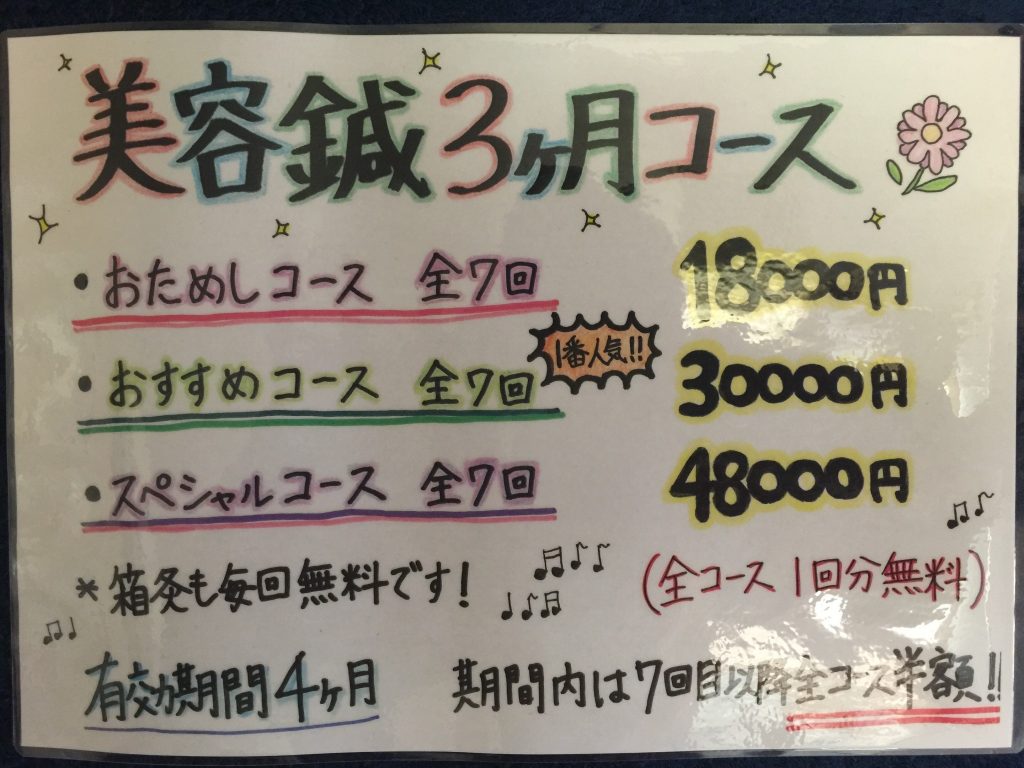 美容鍼3ヶ月コース
・おためしコース 全7回 18000円
1番人気!!
・おすすめコース 全7回 30000円
・スペシャルコース 全7回 48000円
*箱灸も毎回無料です! (全コース1回分無料)
有効期間4ヶ月 期間内は7回目以降全コース半額!!